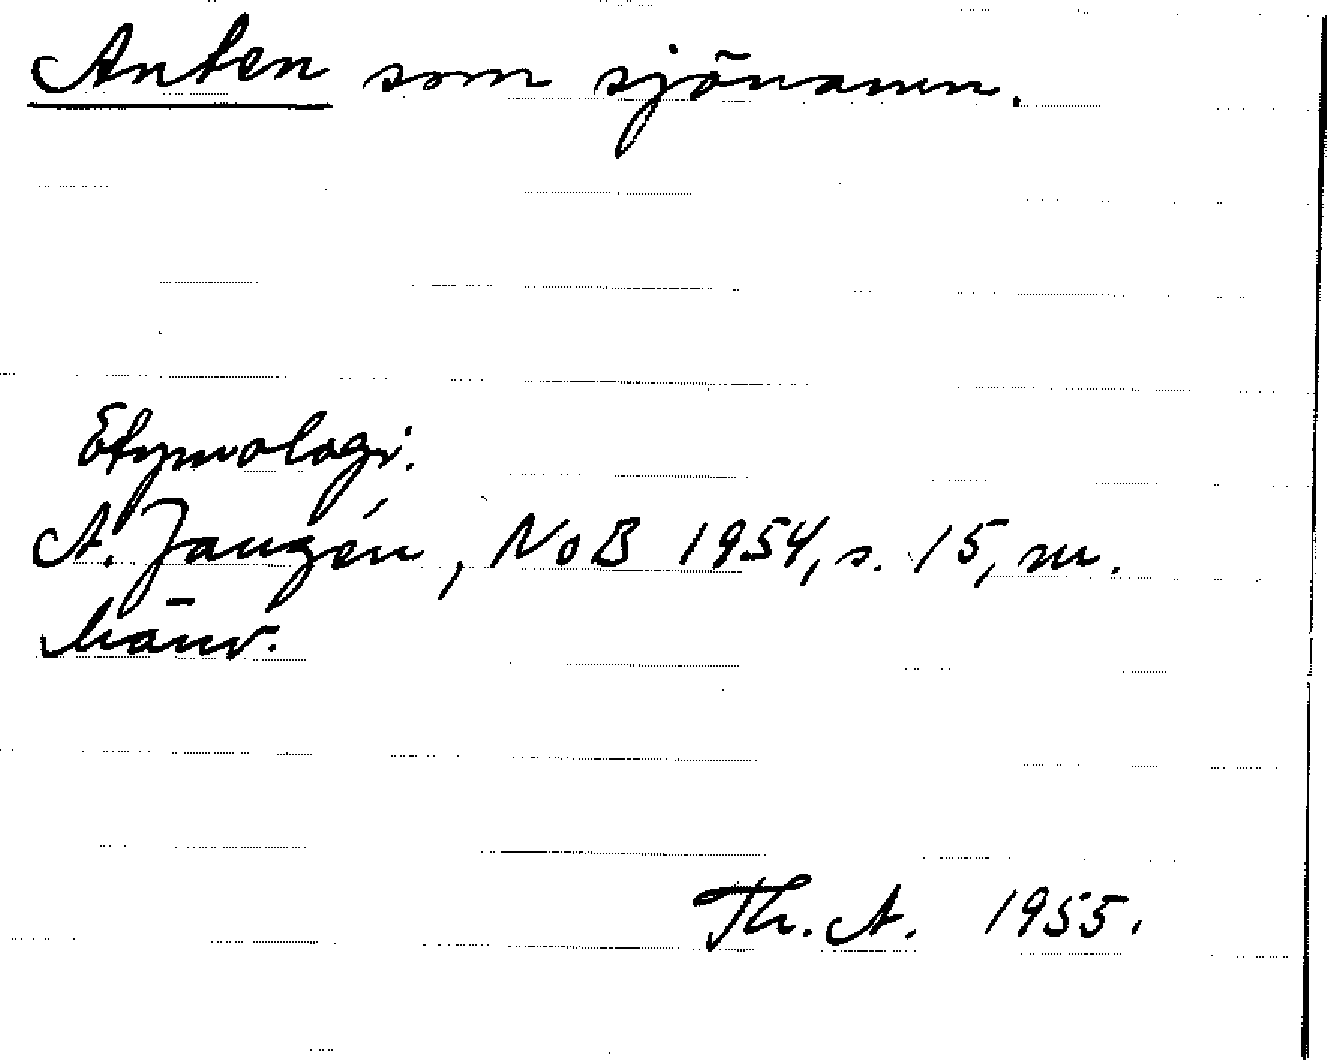 Anten som sjönamn.
Etymologi.
A. Janzén, NoB 1954, s. 15, m.
hänv.
Th. A. 1955.